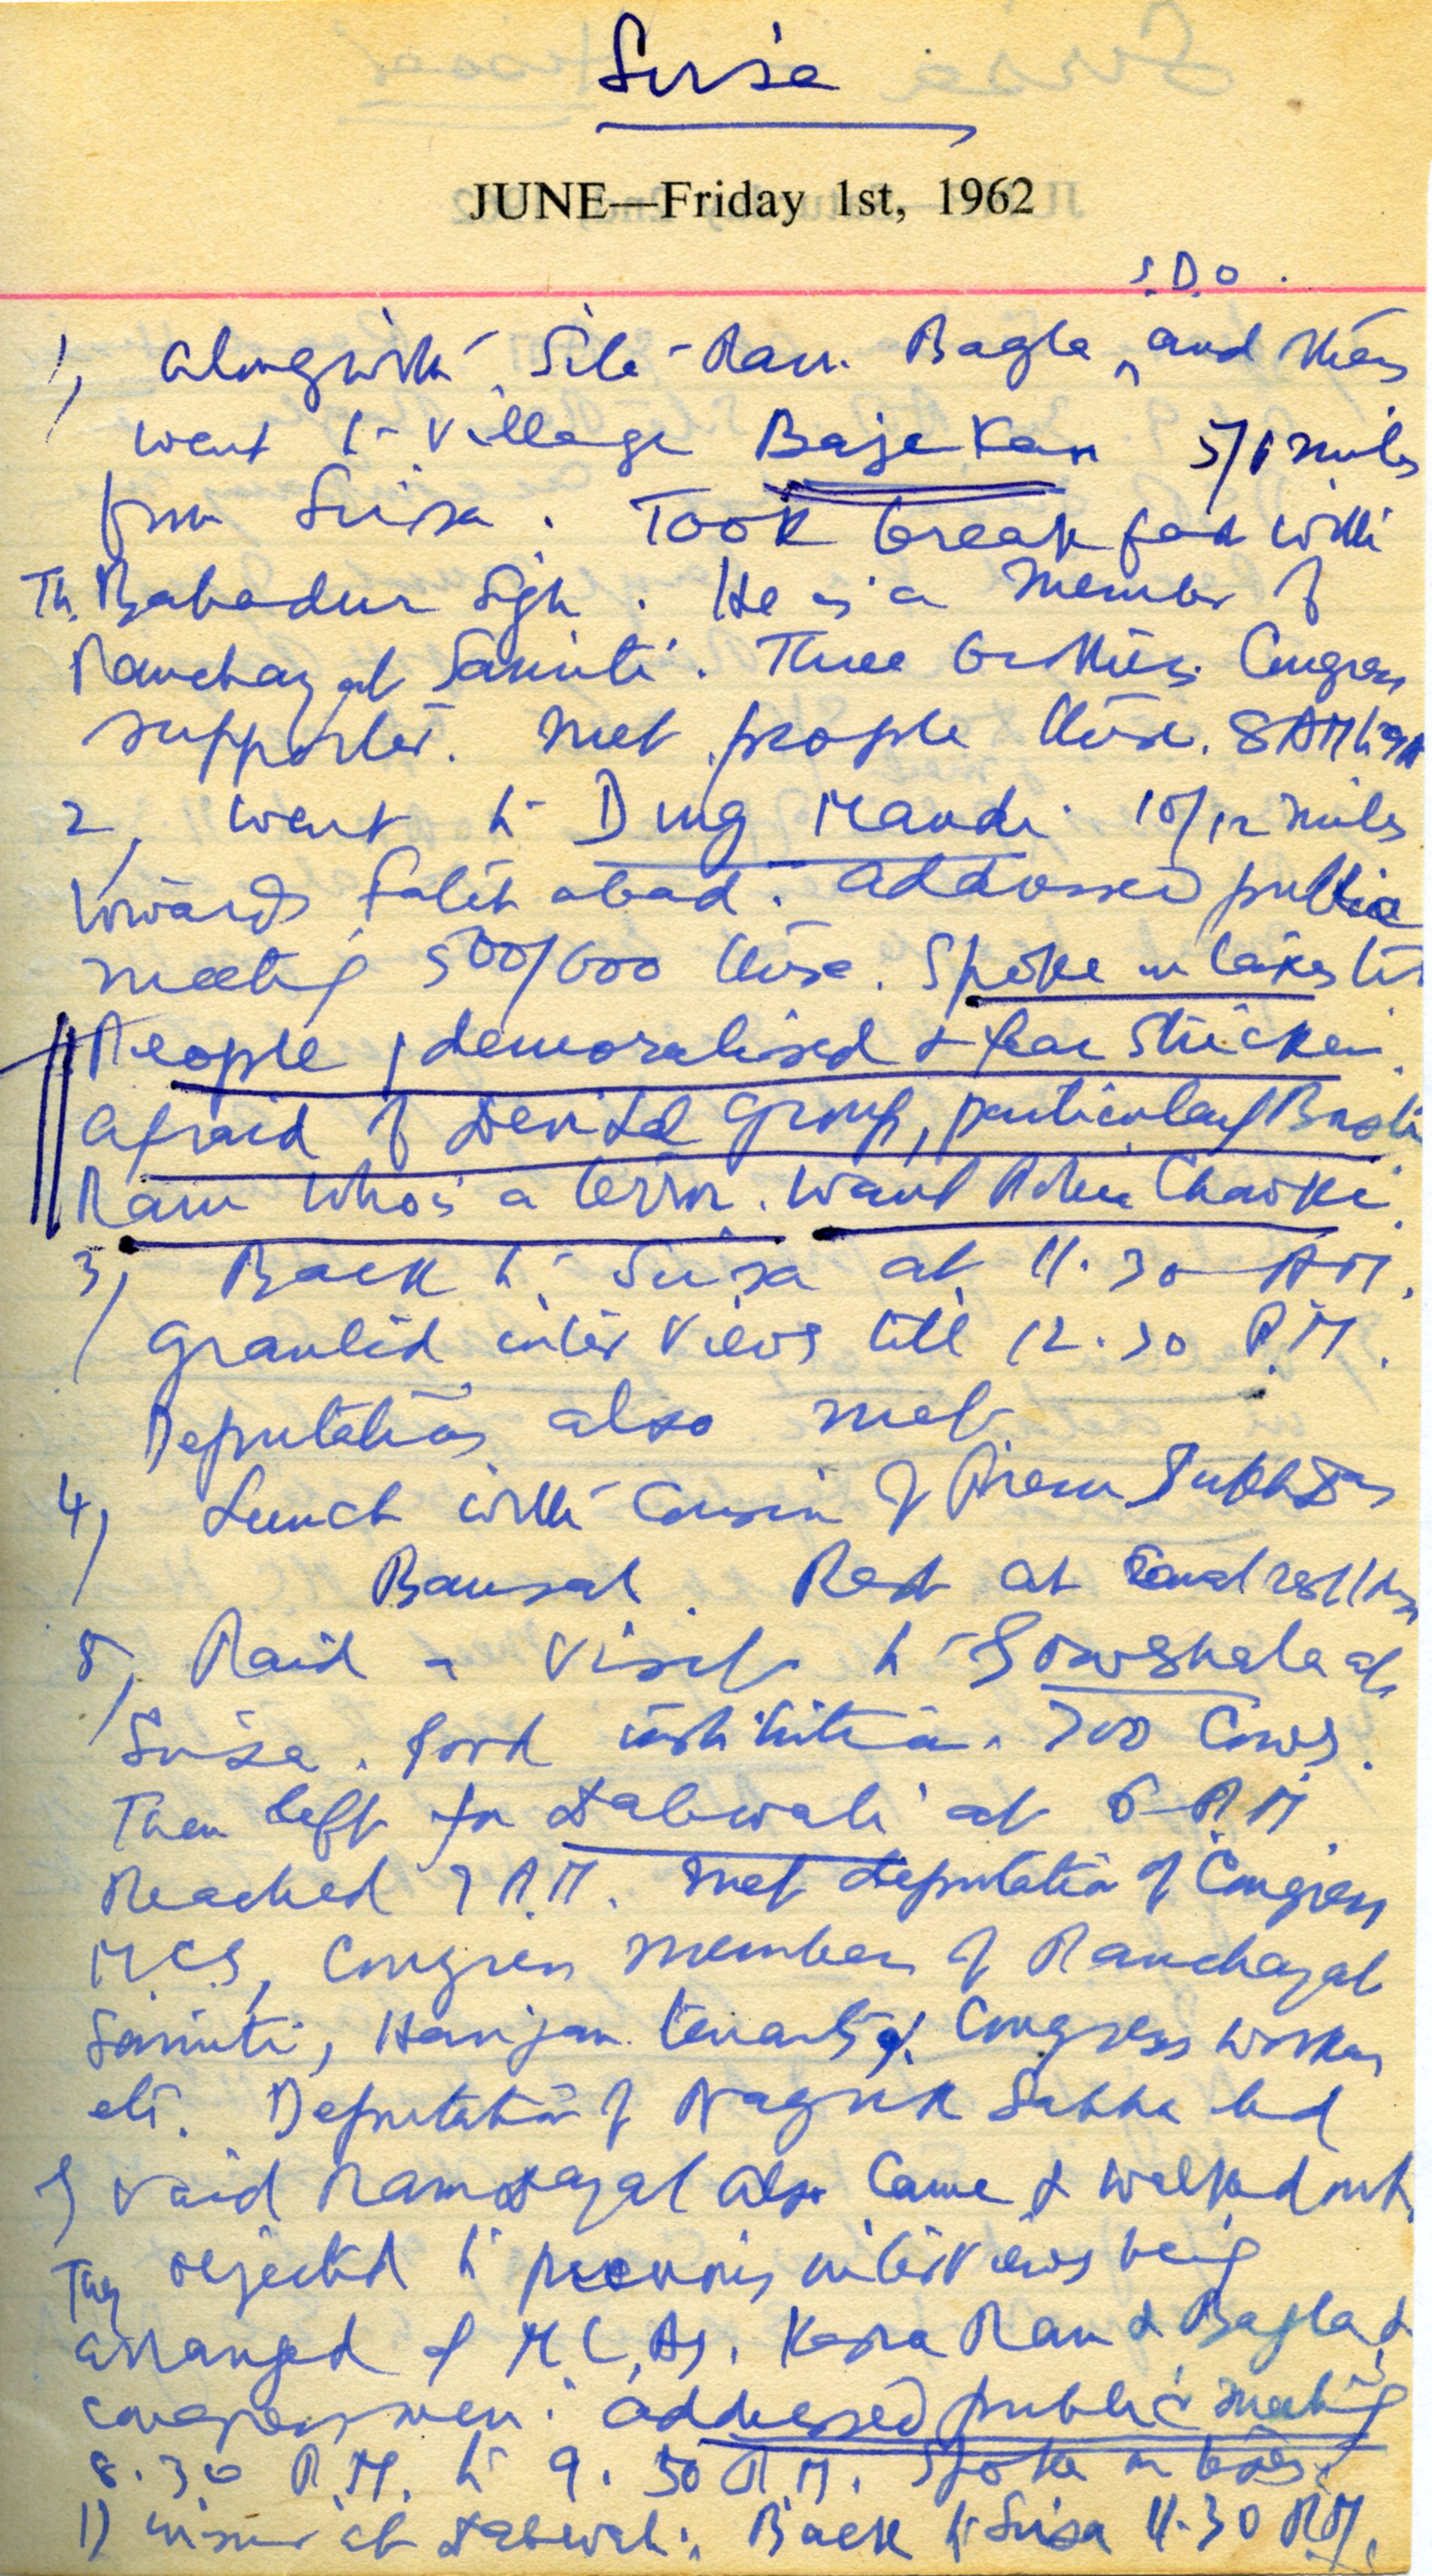 Sirsa
JUNE—Friday 1st, 1962
S.D.O.
1, alongwith Sita Ram Bagla, and others
went to village Bajekan 5/6 miles
from Sirsa. Took breakfast with
Th. Bahadur Sigh. He is a member of
Panchayat Samiti. Three brothers. Congress
supporter. Met people there. 8 AM to 9 AM
2, went to Ding Mandi 10/12 miles
towards Fateh abad. addressed public
meeting 500/600 there. Spoke on taxes etc
People demoralised & fear stricken.
afraid of Devi Lal group, particularly
Ram who is a terror. Want Police Chawki.
3, Back to Sirsa at 11.30 AM.
granted interviews till 12.30 P.M.
Deputations also met
4, Lunch with Cousin of Prem Sukh Das
Bansal. Rest at Canal rest House
5, Paid a visit to Gowshala at
Sirsa. good institution. 700 Cows.
Then left for Dabwali at 6 P.M.
Reached 7 P.M. met deputation of Congress
MCS, Congress members of Panchayat
Samiti, Harijan tenants, Congress workers
etc. Deputation of Nagrik Sabha led
by Vaid Ramdayal also came & walked out.
They objected to previous interviews being
arranged of M.C.As. Kesra Ram & Bagla &
congressmen. addressed public meeting
8.30 P.M. to 9.30 P.M. Spoke on taxes.
Dinner at Dabwali. Back to Sirsa 11.30 PM.